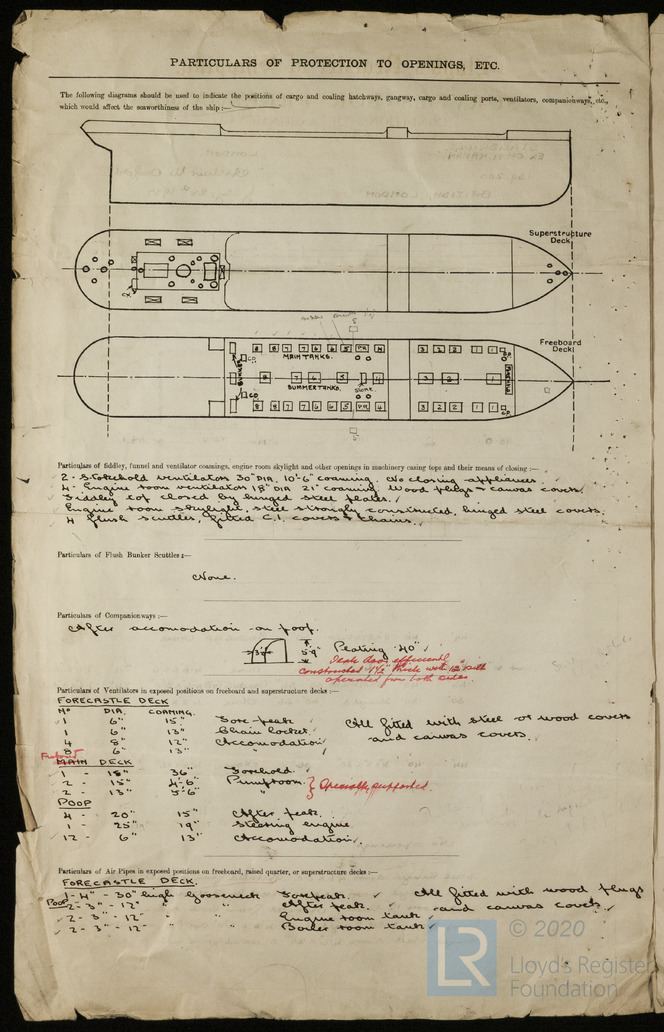 PARTICULARS OF PROTECTION TO OPENINGS, ETC.
The following diagrams should be used to indicate the positions of cargo and coaling hatchways, gangway, cargo and coaling ports, ventilators, companionways, etc.,
which would affect the seaworthiness of the ship:—
Superstructure
Deck
Freeboard
Deck
8 8 7 7 6 6 5 PR 4 3 2 2 1 1
MAIN TANKS.
BUNKER
7 6 5 4 3 2 1
SUMMER TANKS.
8 8 7 7 6 6 5 PR 4 3 2 2 1 1
Particulars of fiddley, funnel and ventilator coamings, engine room skylight and other openings in machinery casing tops and their means of closing :—
2 - Stokehold ventilators 30" DIA. 10'-6" coaming. No closing appliances.
4 - Engine room ventilators 18" DIA 21" coaming. Wood plugs & canvas covers.
Fiddley top closed by hinged steel plates.
Engine room skylight, steel strongly constructed, hinged steel covers.
4 flush scuttles, fitted C.I. covers & chains.
Particulars of Flush Bunker Scuttles :—
None.
Particulars of Companionways :—
After accomodation on poop.
5'-9" Plating .40"
Teak door efficiently
constructed 1½" thick with 12" sill
operated from both sides.
Particulars of Ventilators in exposed positions on freeboard and superstructure decks :—
FORECASTLE DECK
No DIA. COAMING.
1 6" 15" Fore-peak
1 6" 13" Chain locker.
4 8" 12" Accomodation
8 6" 13" "
All fitted with steel or wood covers
and canvas covers.
MAIN DECK
1 - 18" 36" Forehold.
2 - 15" 4'-6" Pumproom.
2 - 13" 5'-6" "
Specially supported.
POOP
4 - 20" 15" After peak.
1 - 25" 19" Steering engine.
12 - 6" 13" Accomodation.
Particulars of Air Pipes in exposed positions on freeboard, raised quarter, or superstructure decks :—
FORECASTLE DECK.
1 - 4" - 30" high Gooseneck Forepeak. All fitted with wood plugs
POOP 2 - 3" - 12" " " After peak. and canvas covers.
2 - 3" - 12" " " Engine room tank
2 - 3" - 12" " " Boiler room tank
LR
© 2020
Lloyd's Register
Foundation